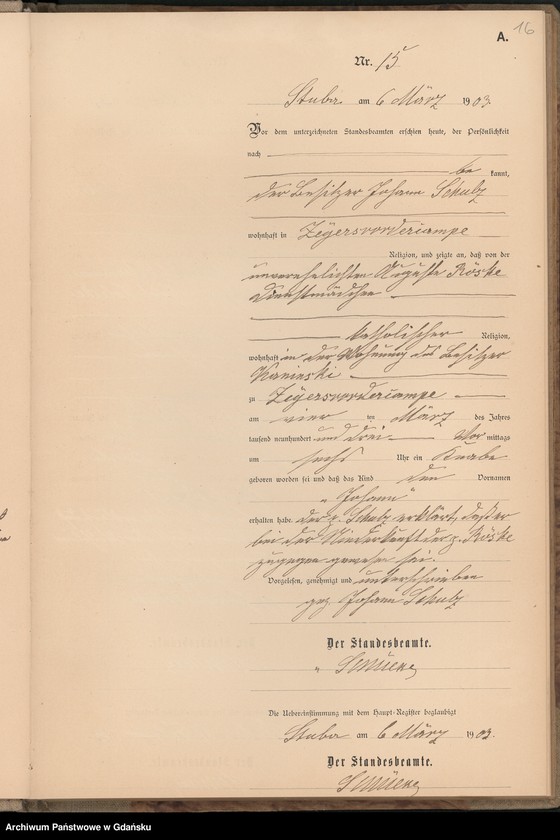 16
A.
Nr. 15
Stuba am 6 März 1903.
Vor dem unterzeichneten Standesbeamten erschien heute, der Persönlichkeit
nach
be kannt,
der Besitzer Johann Schulz
wohnhaft in Zeyersvordercampe
Religion, und zeigte an, daß von der
unverehelichten Auguste Röske
Dienstmädchen
katholischer Religion,
wohnhaft in der Wohnung des Besitzer
Kaminski
zu Zeyersvordercampe
am vier ten März des Jahres
tausend neunhundert und drei Vor mittags
um sechs Uhr ein Knabe
geboren worden sei und daß das Kind den Vornamen
"Johann"
erhalten habe. der p. Schulz erklärt, daß er
bei der Niederkunft der p. Röske
zugegen gewesen sei.
Vorgelesen, genehmigt und unterschrieben
gez Johann Schulz
Der Standesbeamte.
Die Uebereinstimmung mit dem Haupt-Register beglaubigt
Stuba am 6 März 1903.
Der Standesbeamte.
Archiwum Państwowe w Gdańsku